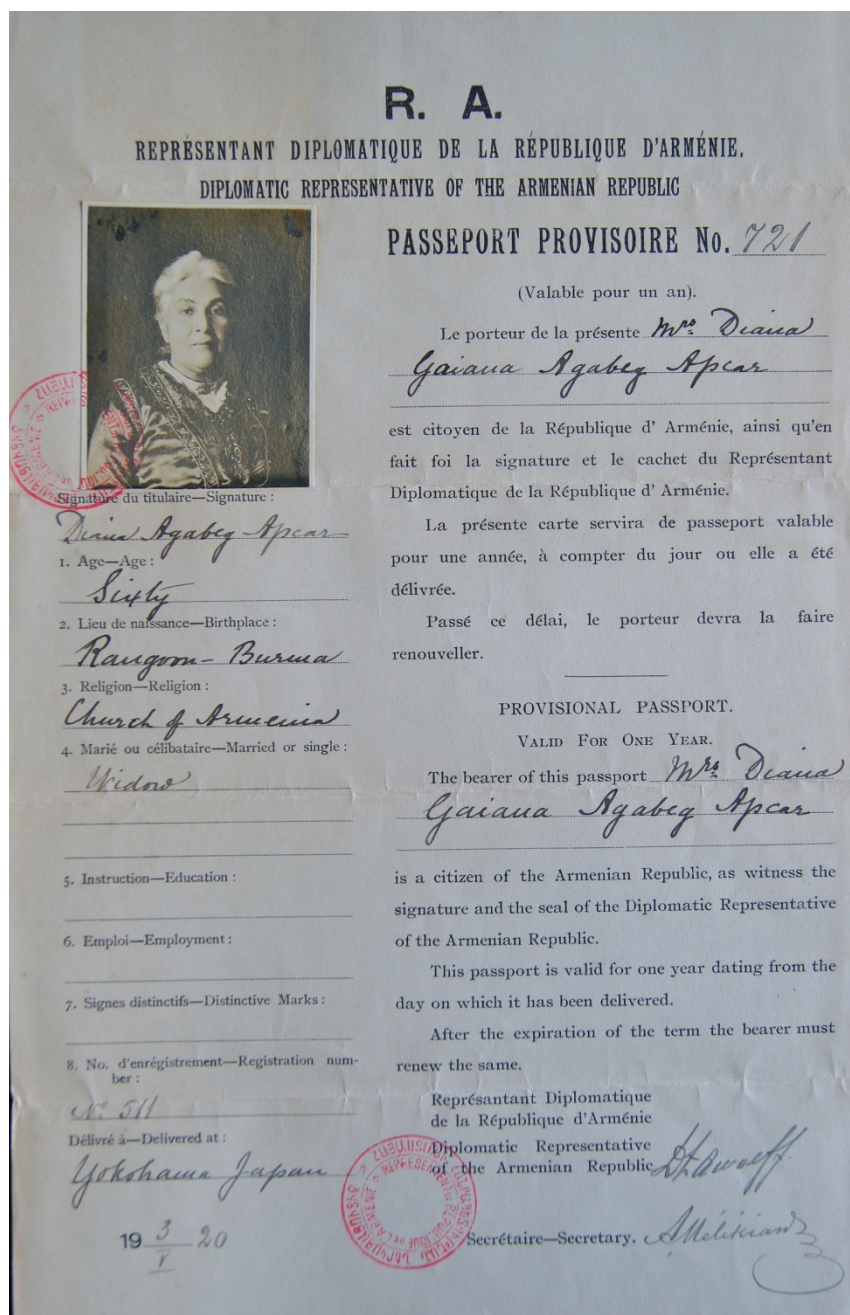 R. A.
REPRÉSENTANT DIPLOMATIQUE DE LA RÉPUBLIQUE D'ARMÉNIE.
DIPLOMATIC REPRESENTATIVE OF THE ARMENIAN REPUBLIC
Signature du titulaire—Signature :
Diana Agabeg Apcar
1. Age—Age :
Sixty
2. Lieu de naissance—Birthplace :
Rangoon - Burma
3. Religion—Religion :
Church of Armenia
4. Marié ou célibataire—Married or single :
Widow
5. Instruction—Education :
6. Emploi—Employment :
7. Signes distinctifs—Distinctive Marks :
8. No. d'enrégistrement—Registration num-
ber :
No 511
Délivré à—Delivered at :
Yokohama Japan
19 3/V 20
PASSEPORT PROVISOIRE No. 721
(Valable pour un an).
Le porteur de la présente Mrs Diana
Gaiana Agabeg Apcar
est citoyen de la République d' Arménie, ainsi qu'en
fait foi la signature et le cachet du Représentant
Diplomatique de la République d' Arménie.
La présente carte servira de passeport valable
pour une année, à compter du jour ou elle a été
délivrée.
Passé ce délai, le porteur devra la faire
renouveller.
PROVISIONAL PASSPORT.
VALID FOR ONE YEAR.
The bearer of this passport Mrs Diana
Gaiana Agabeg Apcar
is a citizen of the Armenian Republic, as witness the
signature and the seal of the Diplomatic Representative
of the Armenian Republic.
This passport is valid for one year dating from the
day on which it has been delivered.
After the expiration of the term the bearer must
renew the same.
Représantant Diplomatique
de la République d'Arménie
Diplomatic Representative
of the Armenian Republic
Secrétaire—Secretary. A Mélikian